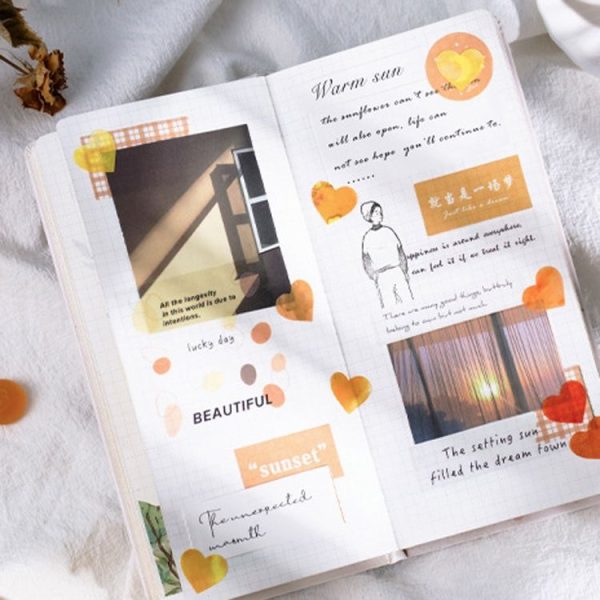 All the longevity
in this world is due to
intentions.
lucky day
BEAUTIFUL
“sunset”
The unexpected
warmth
Warm sun
the sunflower can't see the sun
will also open, life can
not see hope you'll continue to.
......
就当是一场梦
Just like a dream
appiness is around everywhere,
can feel it if we treat it right.
There are many good things, but truly
belong to our but not much
The setting sun
filled the dream town